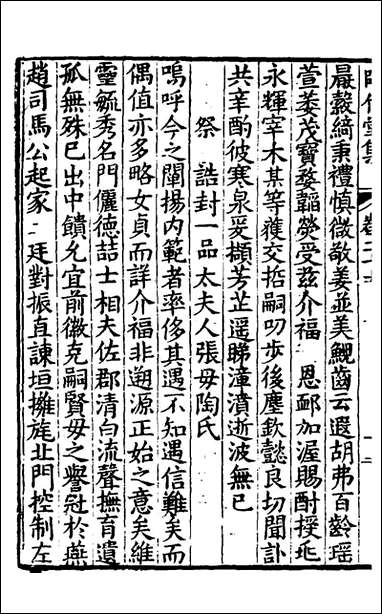 嚴縠綺秉禮慎微敬姜並美鯢齒云遐胡弗百齡瑶
萱萎茂寶婺韜熒受茲介福 恩䘏加渥賜酎授兆
永輝宰木某等獲交哲嗣叨步後塵欽懿良切聞訃
共辛酌彼寒泉爰擷芳芷遥睇潼濆逝波無已
祭 誥封一品太夫人張母陶氏
嗚呼今之闡揚内範者率侈其遇不知遇信難矣而
偶值亦多略女貞而詳介福非遡源正始之意矣維
靈毓秀名門儷德喆士相夫佐郡清白流聲撫育遺
孤無殊已出中饋允宜前徽克嗣賢母之譽冠於燕
趙司馬公起家 廷對振直諌垣擁旄北門控制左